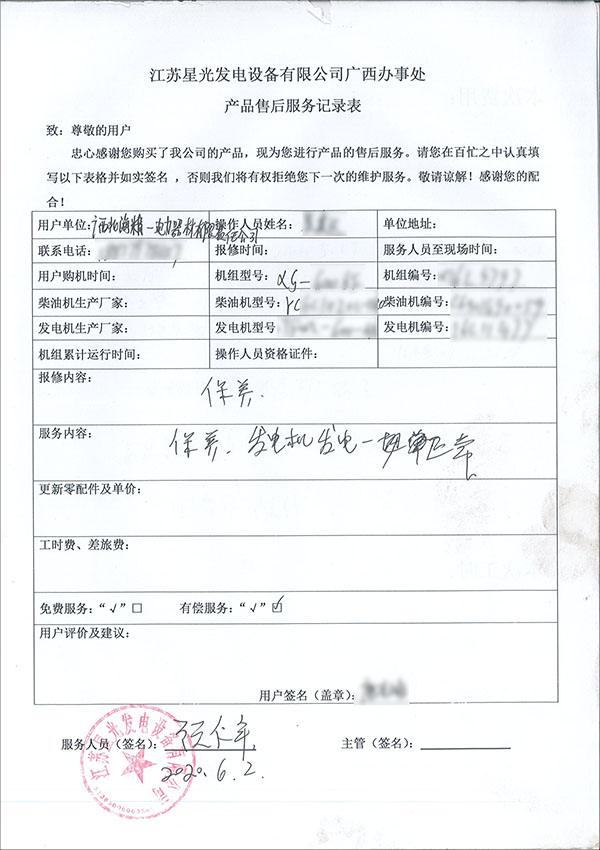 江苏星光发电设备有限公司广西办事处
产品售后服务记录表
致：尊敬的用户
忠心感谢您购买了我公司的产品，现为您进行产品的售后服务。请您在百忙之中认真填
写以下表格并如实签名，否则我们将有权拒绝您下一次的维护服务。敬请谅解！感谢您的配
合！
用户单位: 电力器材有限责任公司 操作人员姓名: 单位地址:
联系电话: 报修时间: 服务人员至现场时间:
用户购机时间: 机组型号: 机组编号:
柴油机生产厂家: 柴油机型号: 柴油机编号:
发电机生产厂家: 发电机型号 发电机编号:
机组累计运行时间: 操作人员资格证件:
报修内容:
保养.
服务内容:
保养. 发电机发电一切正常
更新零配件及单价:
工时费、差旅费:
免费服务: “√” □ 有偿服务: “√” ☑
用户评价及建议:
用户签名（盖章）:
服务人员（签名）: 主管（签名）:
2020.6.2.
江苏星光发电设备有限公司